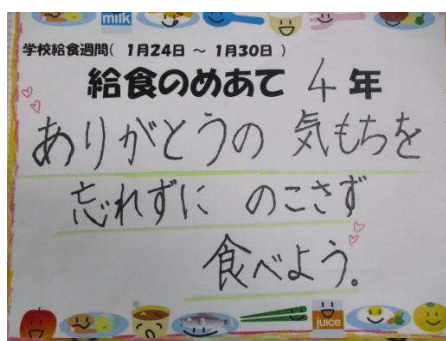 milk
学校給食週間( 1月24日 ～ 1月30日 )
給食のめあて 4 年
ありがとうの 気もちを
忘れずに のこさず
食べよう。
juice